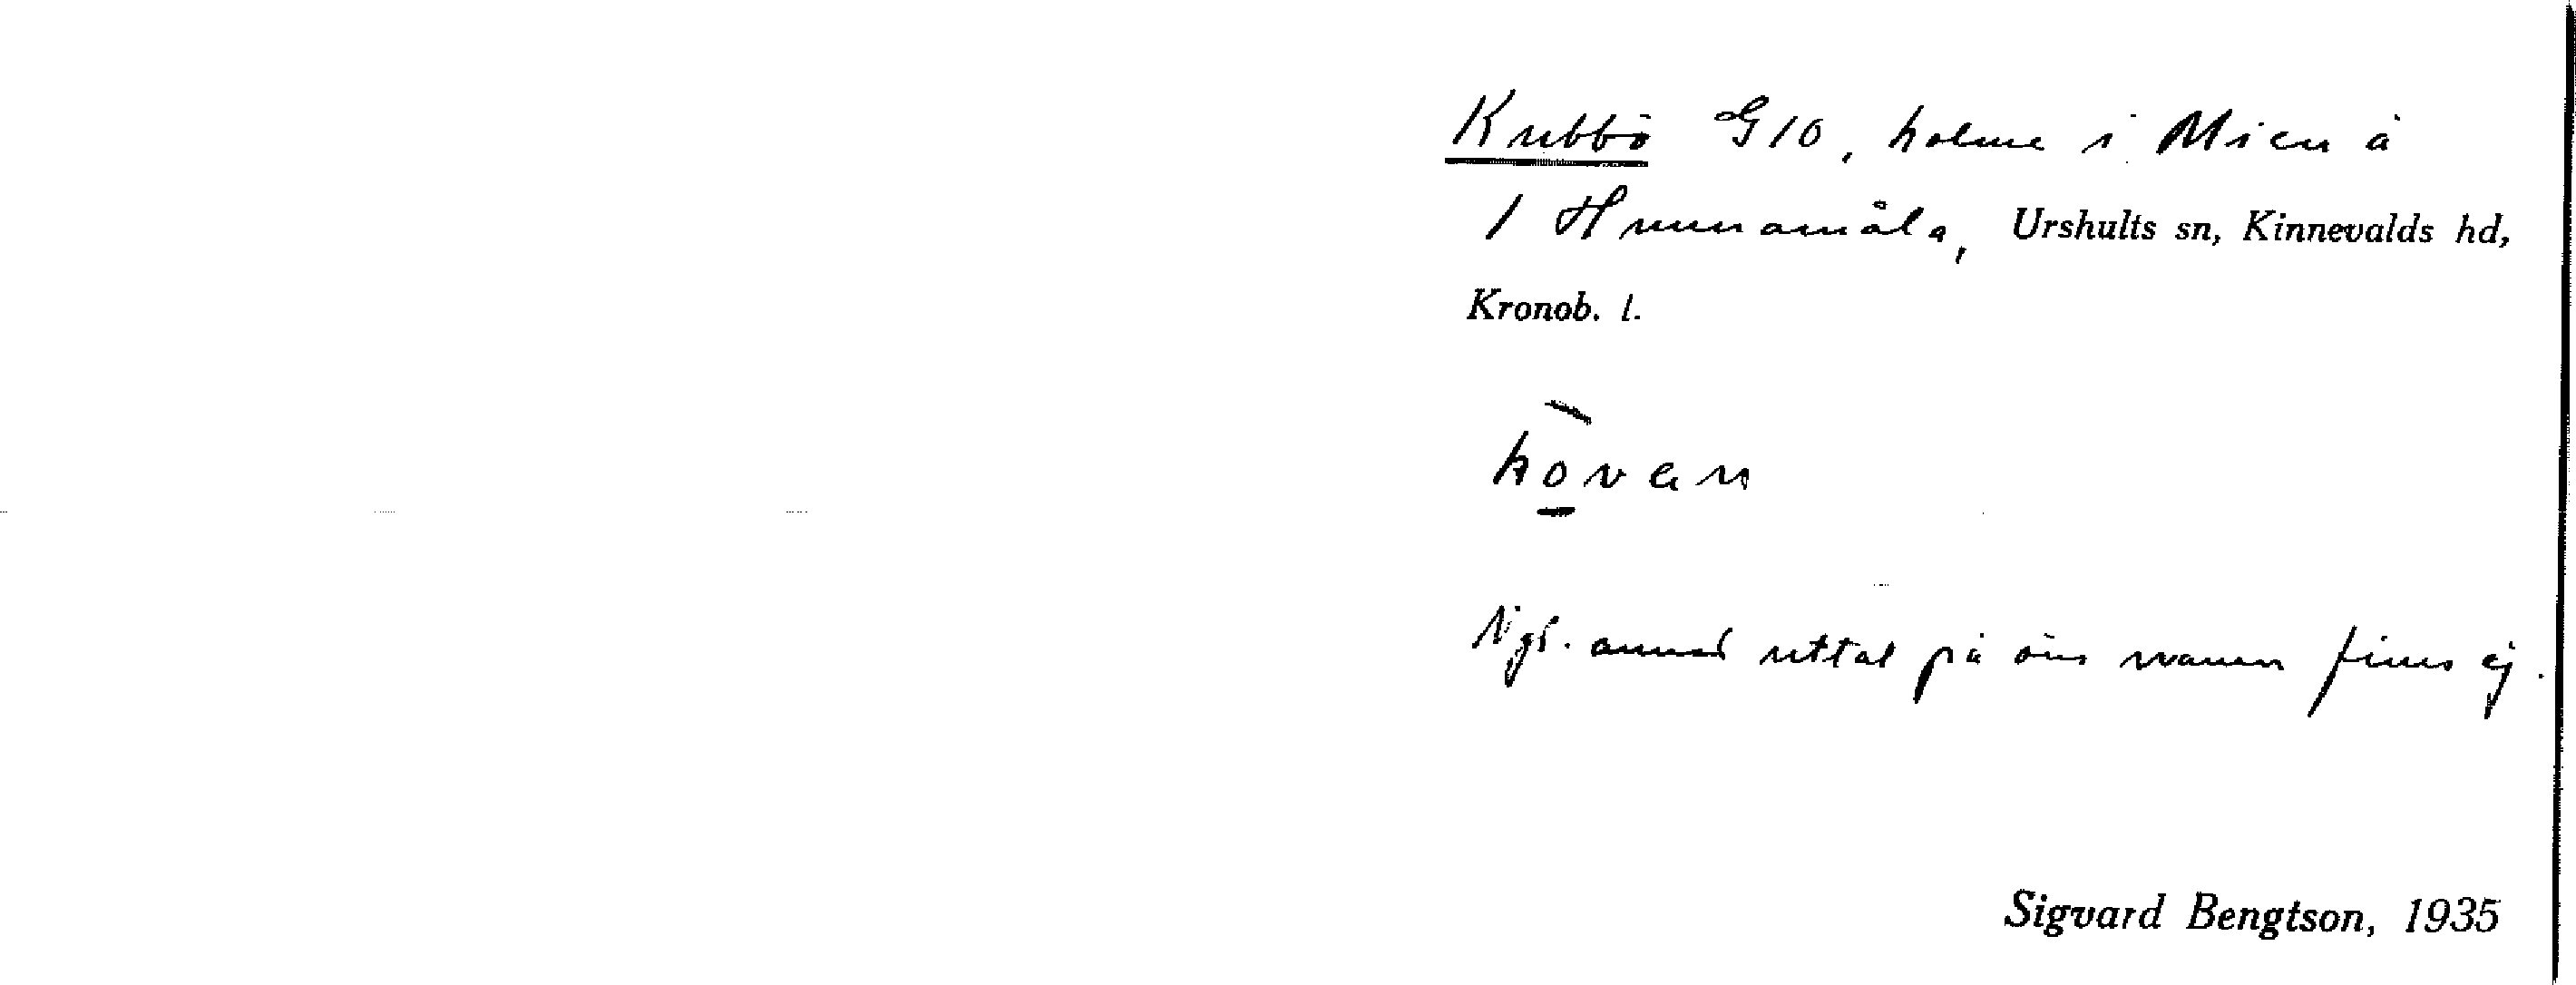 Kubbö G10, holme i Mien å
1 Hunnamåla, Urshults sn, Kinnevalds hd,
Kronob. l.
hovan
Ngt. annat uttal på öns namn finns ej.
Sigvard Bengtson, 1935